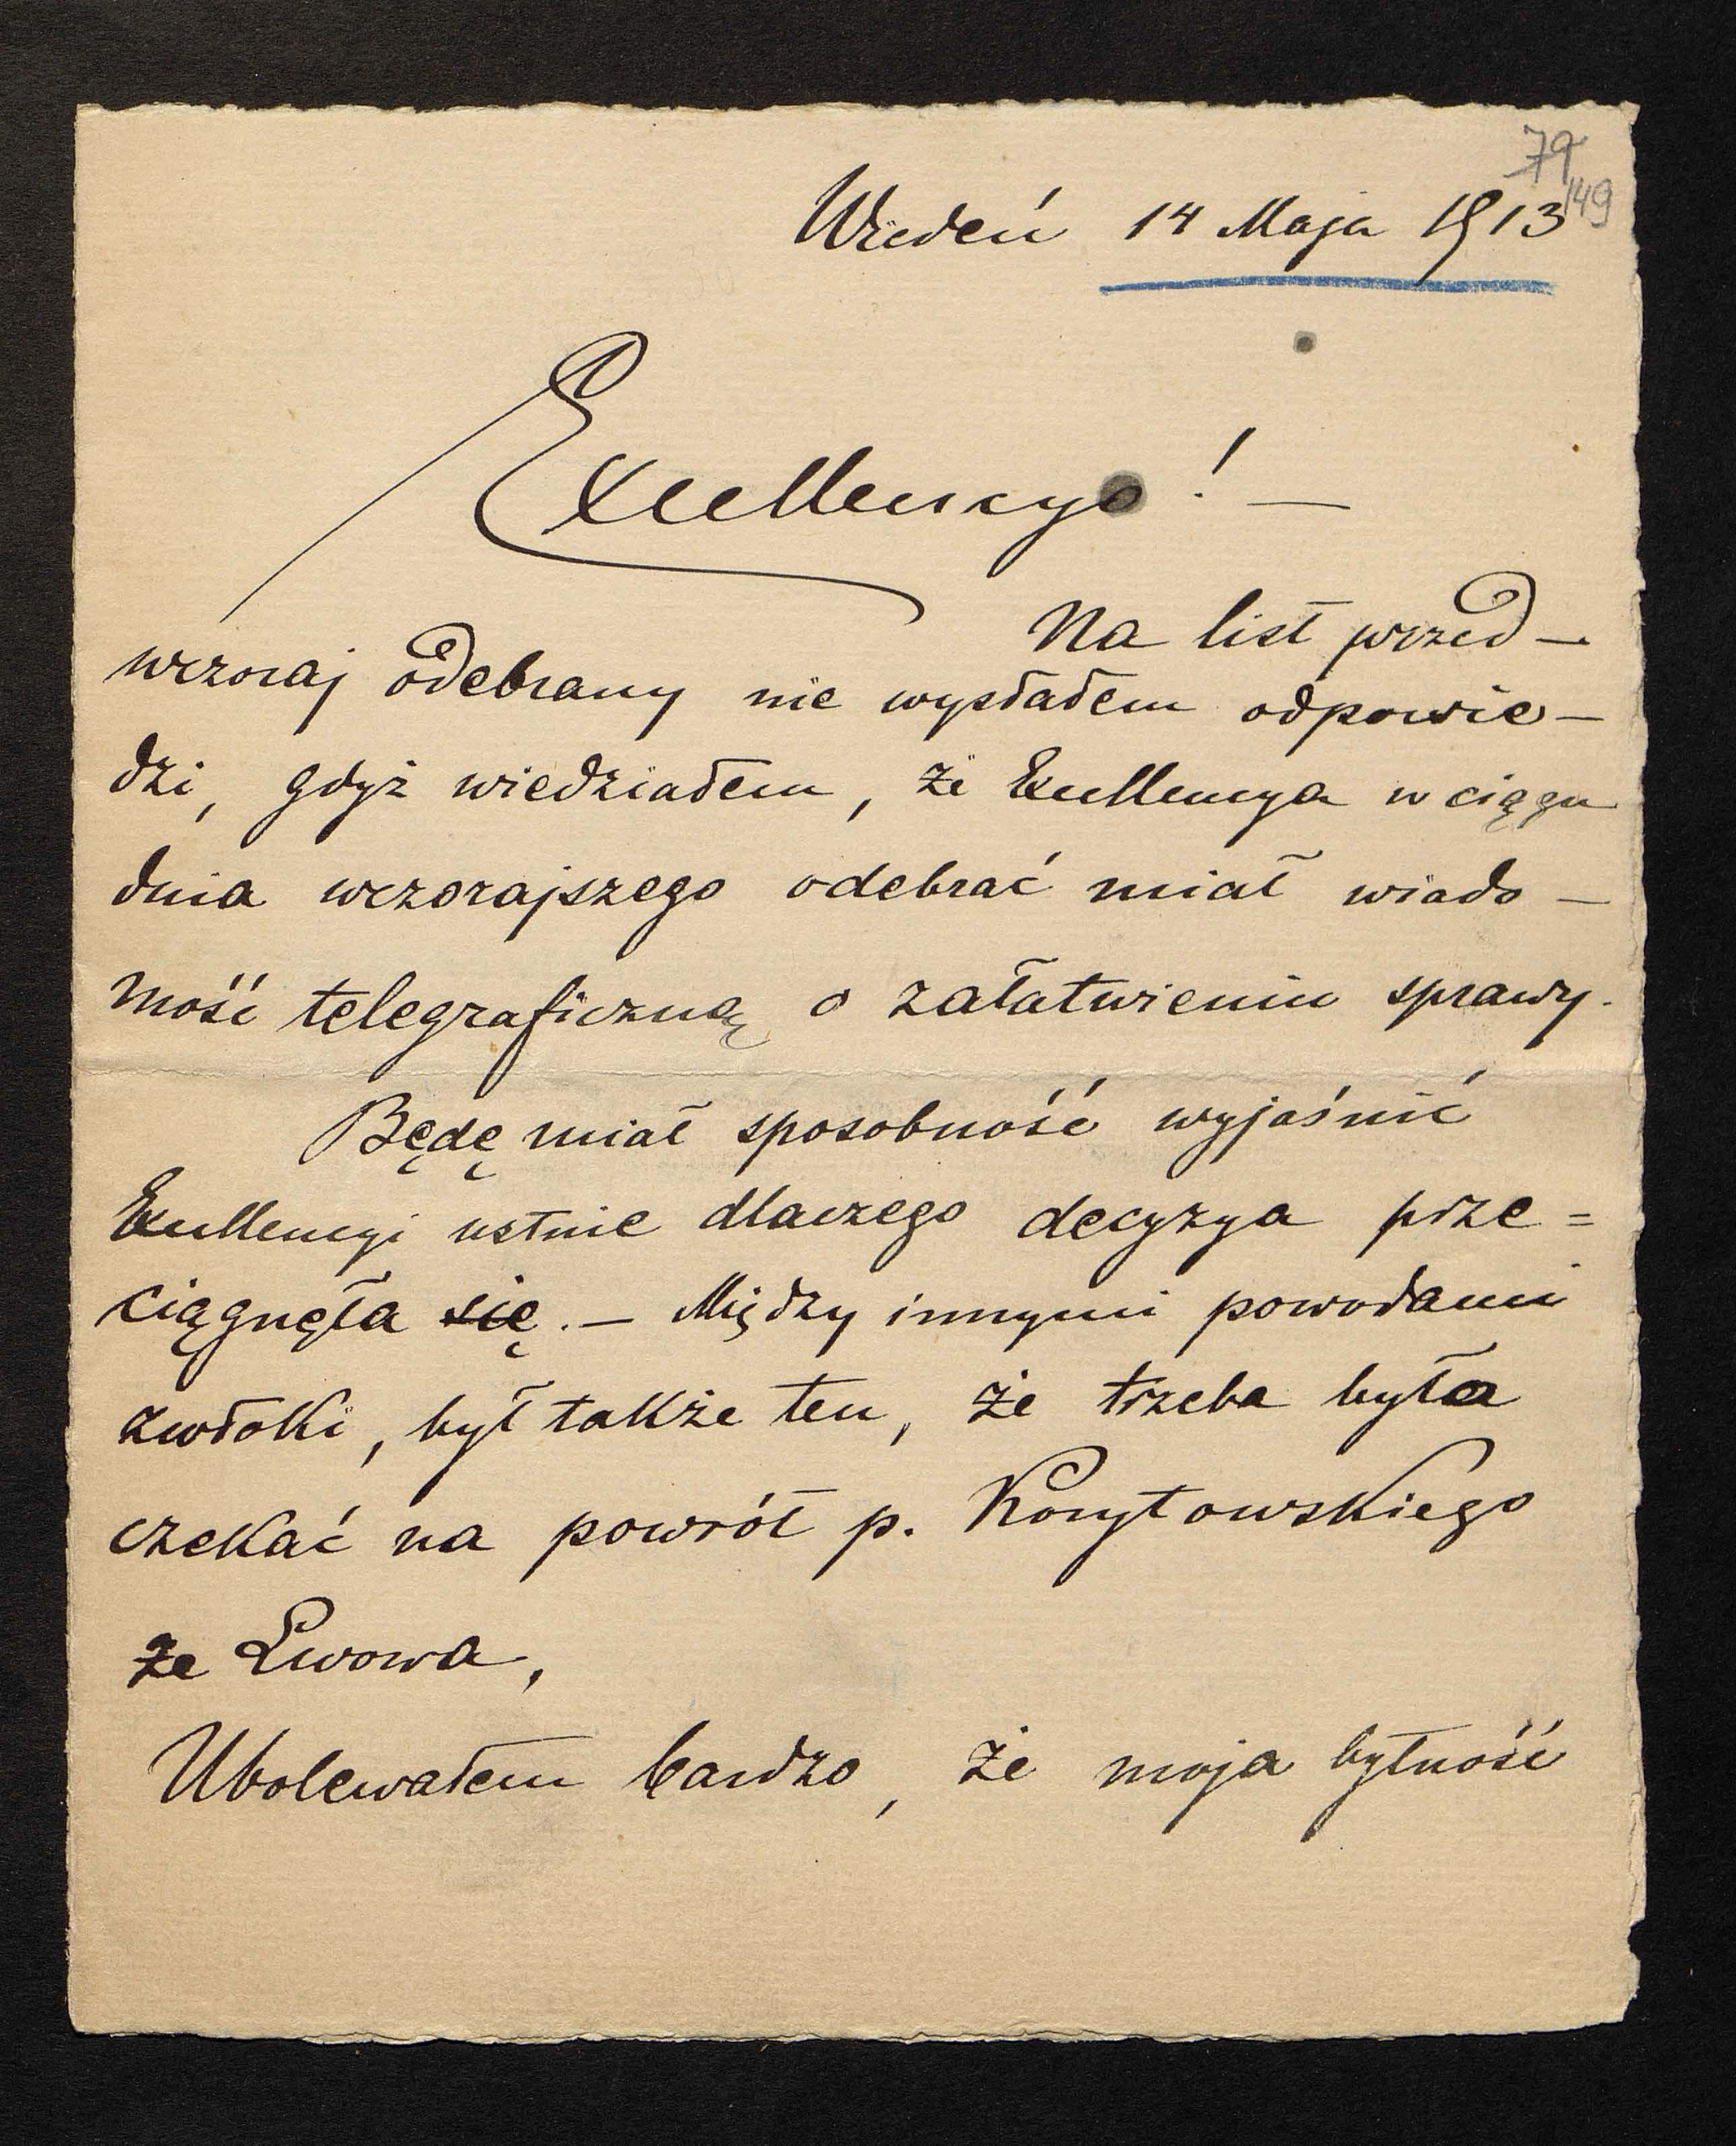 79
149
Wiedeń 14 Maja 1913
Excellencyo! —
Na list przed—
wczoraj odebrany nie wysłałem odpowie—
dzi, gdyż wiedziałem, że Excellencya w ciągu
dnia wczorajszego odebrać miał wiado—
mość telegraficzną o załatwieniu sprawy.
Będę miał sposobność wyjaśnić
Excellencyi ustnie dlaczego decyzya prze=
ciągnęła się. — Między innymi powodami
zwłoki, był także ten, że trzeba była
czekać na powrót p. Korytowskiego
ze Lwowa,
Ubolewałem bardzo, że moja bytność